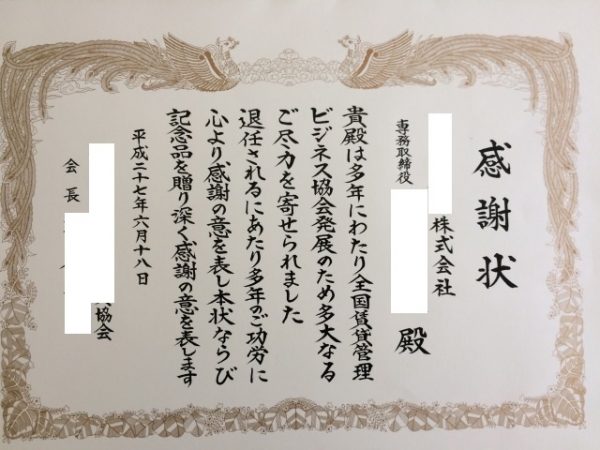 感謝状
株式会社
専務取締役
殿
貴殿は多年にわたり全国賃貸管理
ビジネス協会発展のため多大なる
ご尽力を寄せられました
退任されるにあたり多年のご功労に
心より感謝の意を表し本状ならび
記念品を贈り深く感謝の意を表します
平成二十七年六月十八日
協会
会長